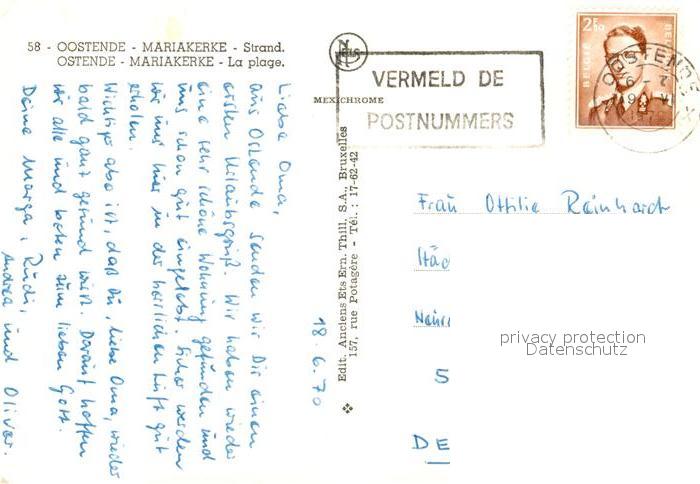 58 - OOSTENDE - MARIAKERKE - Strand.
OSTENDE - MARIAKERKE - La plage.
NELS
MEXICHROME
VERMELD DE
POSTNUMMERS
2F50
BELGIE
OOSTENDE
Liebe Oma,
aus Ostende senden wir Dir einen
ersten Urlaubsgruß. Wir haben wieder
eine sehr schöne Wohnung gefunden und
uns schon gut eingelebt. Sicher werden
wir uns hier in der herrlichen Luft gut
erholen.
Wichtiger aber ist, daß Du, liebe Oma, wieder
bald ganz gesund wirst. Darauf hoffen
wir alle und beten zum lieben Gott.
Deine Marga, Rudi,
Andrea und Oliver.
18.6.70
Edit. Anciens Ets Ern. Thill, S.A., Bruxelles
157, rue Potagère - Tél. : 17-62-42
Frau Ottilie Reinhardt
Städ
5
DE
privacy protection
Datenschutz